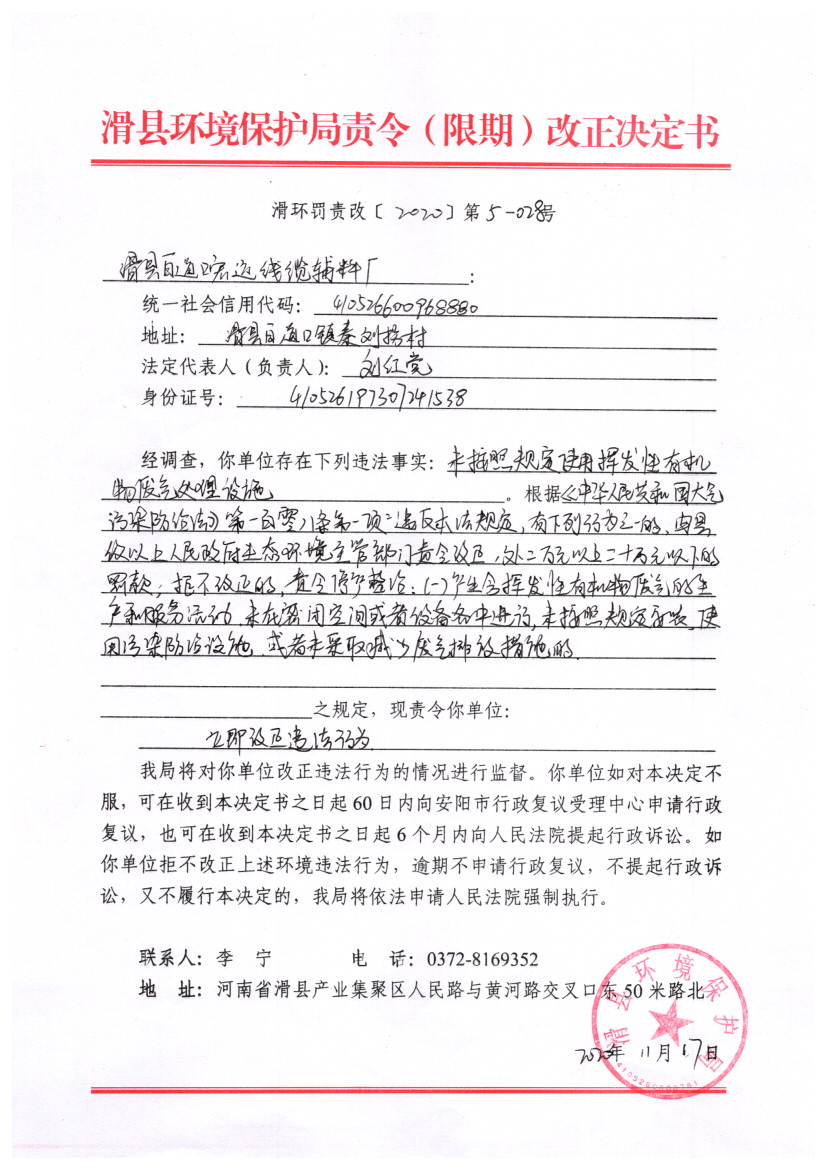 滑县环境保护局责令（限期）改正决定书
滑环罚责改〔2020〕第5-028号
滑县白道口宏远线缆辅料厂：
统一社会信用代码：410526600968880
地址：滑县白道口镇秦刘拐村
法定代表人（负责人）：刘红党
身份证号：410526197307241538
经调查，你单位存在下列违法事实：未按照规定使用挥发性有机
物废气处理设施。根据《中华人民共和国大气
污染防治法》第一百零八条第一项：违反本法规定，有下列行为之一的，由县
级以上人民政府生态环境主管部门责令改正，处二万元以上二十万元以下的
罚款；拒不改正的，责令停产整治：(一)产生含挥发性有机物废气的生
产和服务活动，未在密闭空间或者设备中进行，未按照规定安装、使
用污染防治设施，或者未采取减少废气排放措施的
之规定，现责令你单位：
立即改正违法行为
我局将对你单位改正违法行为的情况进行监督。你单位如对本决定不
服，可在收到本决定书之日起60日内向安阳市行政复议受理中心申请行政
复议，也可在收到本决定书之日起6个月内向人民法院提起行政诉讼。如
你单位拒不改正上述环境违法行为，逾期不申请行政复议，不提起行政诉
讼，又不履行本决定的，我局将依法申请人民法院强制执行。
联系人：李 宁 电 话：0372-8169352
地 址：河南省滑县产业集聚区人民路与黄河路交叉口东50米路北
2020年11月17日
滑县环境保护局